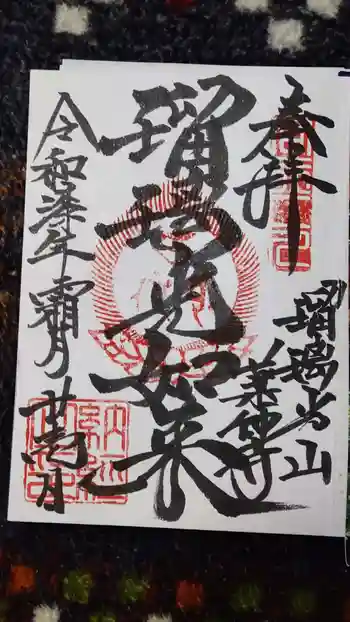 奉拝
瑠璃光山
薬師寺
瑠璃光如来
令和柒年
霜月
廿四日